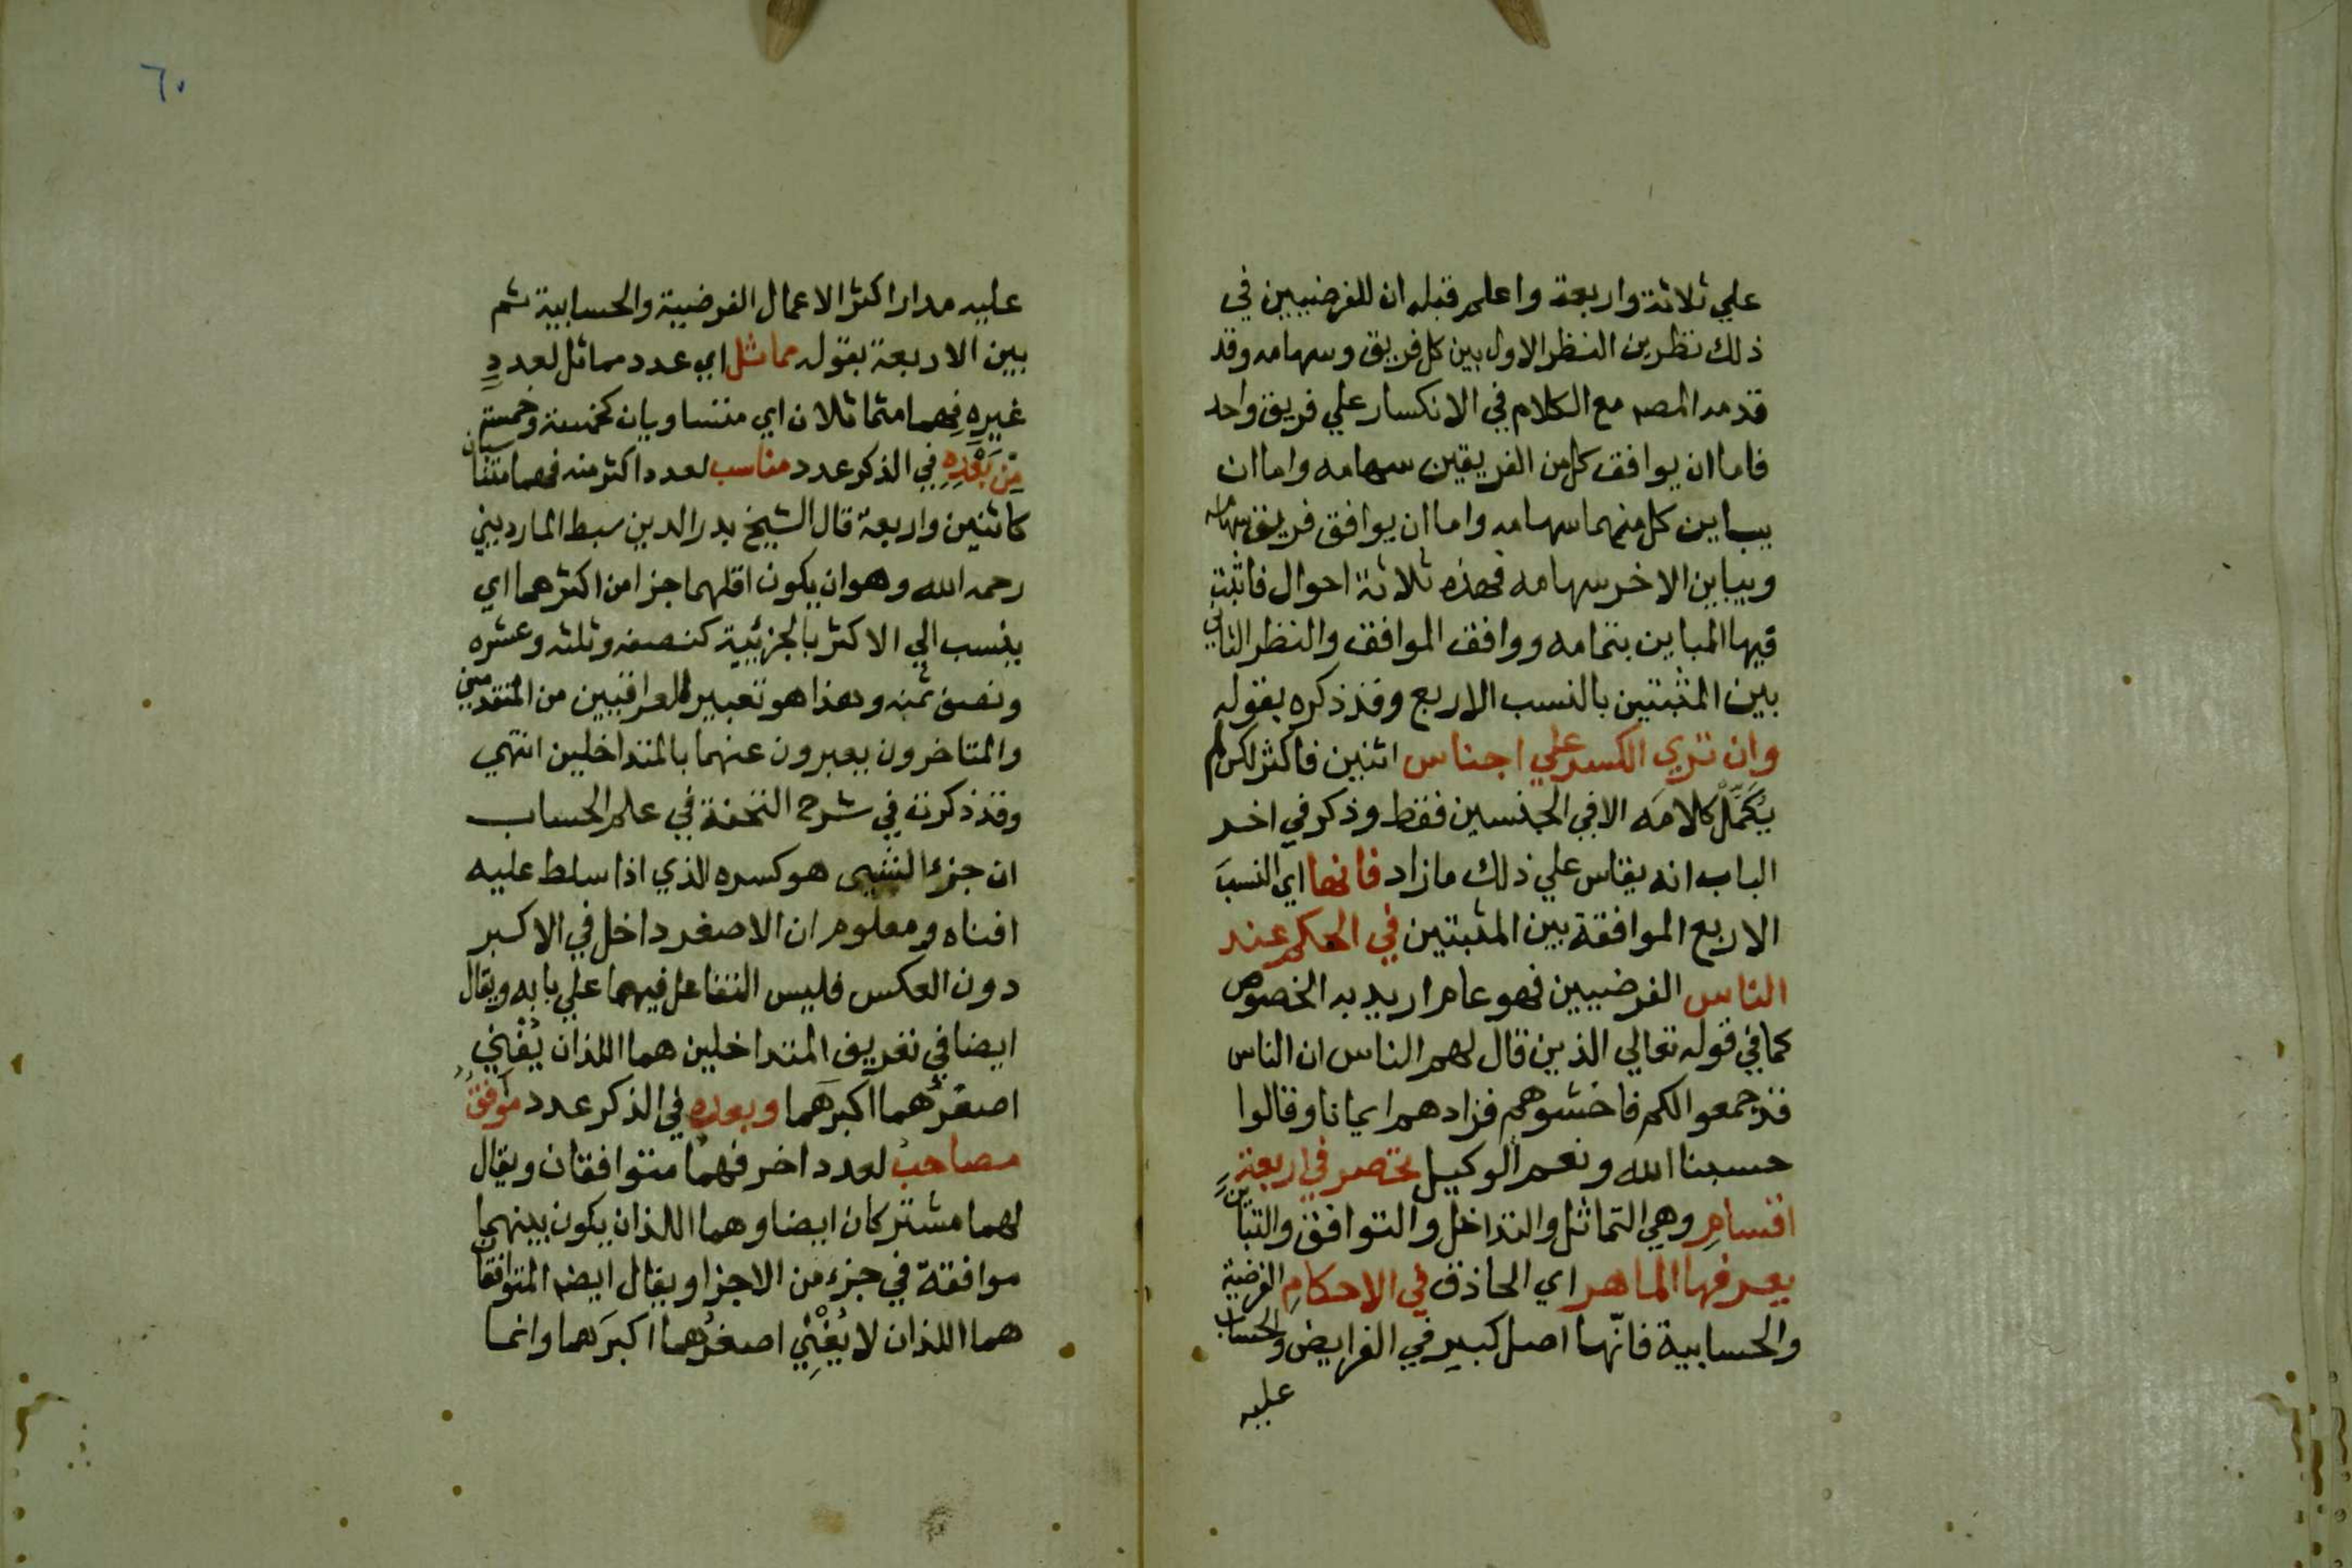 علي ثلاثة واربعة واعلم قبله ان للفرضيين في
ذلك نظرين النظر الاول بين كل فريق وسهامه وقد
قدمه المصه مع الكلام في الانكسار علي فريق واحد
فاما ان يوافق كل من الفريقين سهامه واما ان
يباين كل منهما سهامه واما ان يوافق فريق سهامه
ويباين الاخر سهامه فهذه ثلاثة احوال فاثبت
فيها المباين بتمامه ووافق الموافق والنظر الثاني
بين المثبتين بالنسب الاربع وقد ذكره بقوله
وان تري الكسر علي اجناس اثنين فاكثر لكن لم
يكمّل كلامَه الا في الجنسين فقط وذكر في اخر
الباب انه يقاس علي ذلك ما زاد فانها اي النسبَ
الاربع الموافقة بين المثبتين في الحكم عند
الناس الفرضيين فهو عام اريد به الخصوص
كما في قوله تعالي الذين قال لهم الناس ان الناس
قد جمعوا لكم فاخشوهم فزادهم ايمانا وقالوا
حسبنا الله ونعم الوكيل تحصر في اربعةٍ
اقسامِ وهي التماثل والتداخل والتوافق والتباين
يعرفها الماهر اي الحاذق في الاحكامِ الفرضية
والحسابية فانّها اصل كبير في الفرايض والحساب
عليه
٦٠
عليه مدار اكثر الاعمال الفرضية والحسابية ثم
بين الاربعة بقوله مماثل اي عدد مماثل لعددٍ
غيرِهِ فهما متماثلان اي متساويان كخمسة وخمسة
مِن بَعْدِهِ في الذكر عدد مناسب لعدد اكثر منه فهما متناسبان
كاثنين واربعة قال الشيخ بدر الدين سبط المارديني
رحمه الله وهو ان يكون اقلهما جزا من اكثرهما اي
ينسب الي الاكثر بالجزئية كنصفه وثلثه وعشره
ونصف ثمنه وهذا هو تعبير العراقيين من المتقدمين
والمتاخرون يعبرون عنهما بالمتداخلين انتهي
وقد ذكرته في شرح التحفة في علم الحساب
ان جزء الشيى هو كسره الذي اذا سلط عليه
افناه ومعلوم ان الاصغر داخل في الاكبر
دون العكس فليس التفاعل فيهما علي بابه ويقال
ايضا في تعريف المتداخلين هما اللذان يُفْنِي
اصغرُهما اكبرَهما وبعده في الذكر عدد موافقٌ
مصاحبٌ لعدد اخر فهما متوافقان ويقال
لهما مشتركان ايضا وهما اللذان يكون بينهما
موافقة في جزء من الاجزا ويقال ايضه المتوافقان
هما اللذان لا يُفْنِي اصغرُهما اكبرَهما وانما